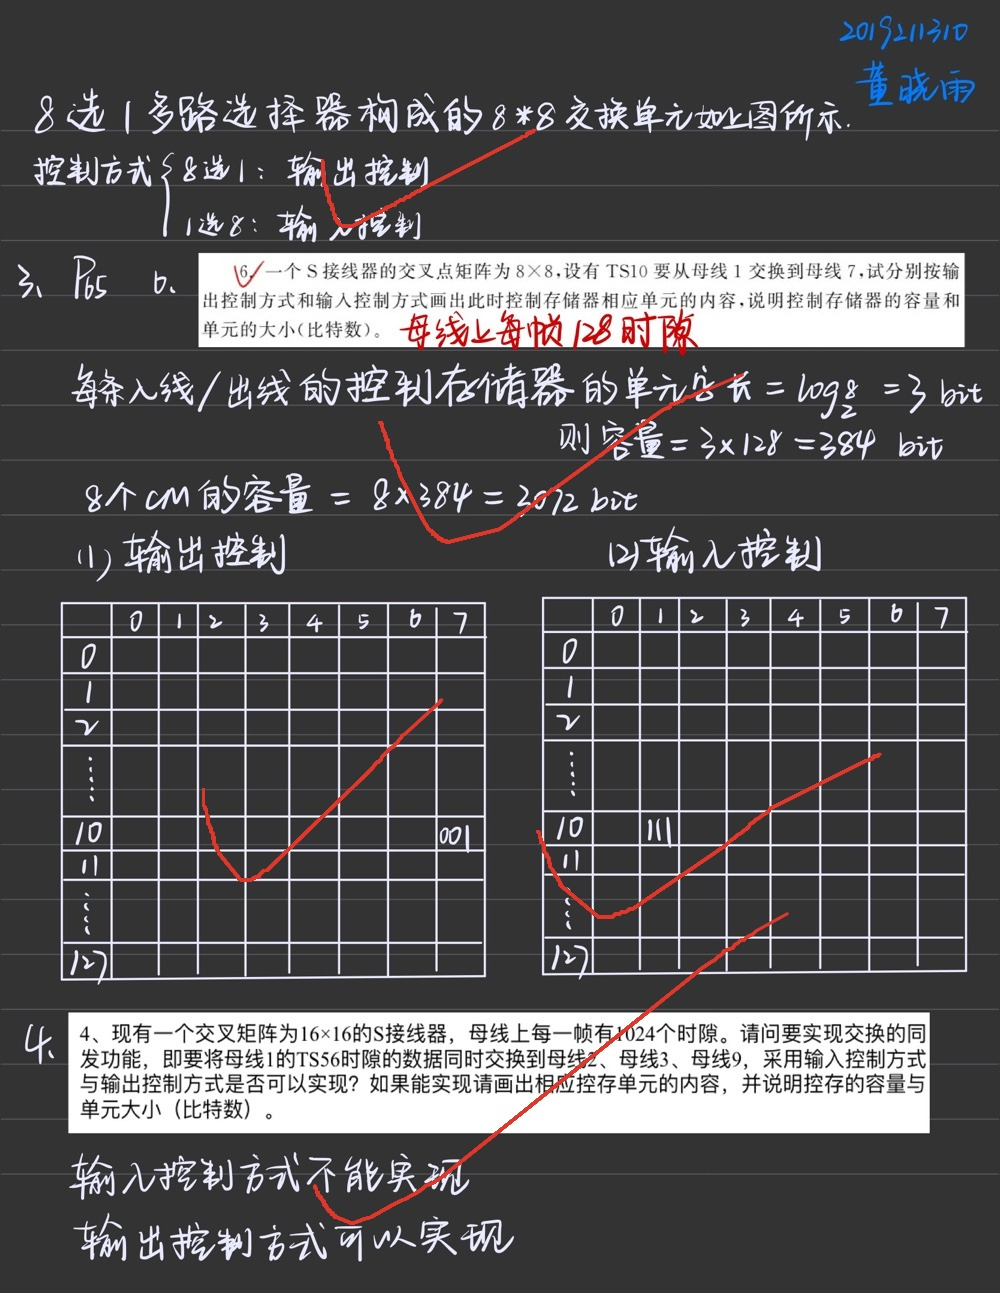 2019211310
董晓雨
8选1多路选择器构成的8*8交换单元如上图所示.
控制方式{8选1：输出控制
1选8：输入控制
3、P65 6、
6、一个S接线器的交叉点矩阵为8×8,设有TS10要从母线1交换到母线7,试分别按输
出控制方式和输入控制方式画出此时控制存储器相应单元的内容,说明控制存储器的容量和
单元的大小(比特数)。 母线上每帧128时隙
每条入线/出线的控制存储器的单元字长=log₂8=3 bit
则容量=3×128=384 bit
8个CM的容量=8×384=3072 bit
(1)输出控制 (2)输入控制
0 1 2 3 4 5 6 7
0
1
2
……
10 001
11
……
127
0 1 2 3 4 5 6 7
0
1
2
……
10 111
11
……
127
4、
4、现有一个交叉矩阵为16×16的S接线器，母线上每一帧有1024个时隙。请问要实现交换的同
发功能，即要将母线1的TS56时隙的数据同时交换到母线2、母线3、母线9，采用输入控制方式
与输出控制方式是否可以实现？如果能实现请画出相应控存单元的内容，并说明控存的容量与
单元大小（比特数）。
输入控制方式不能实现
输出控制方式可以实现